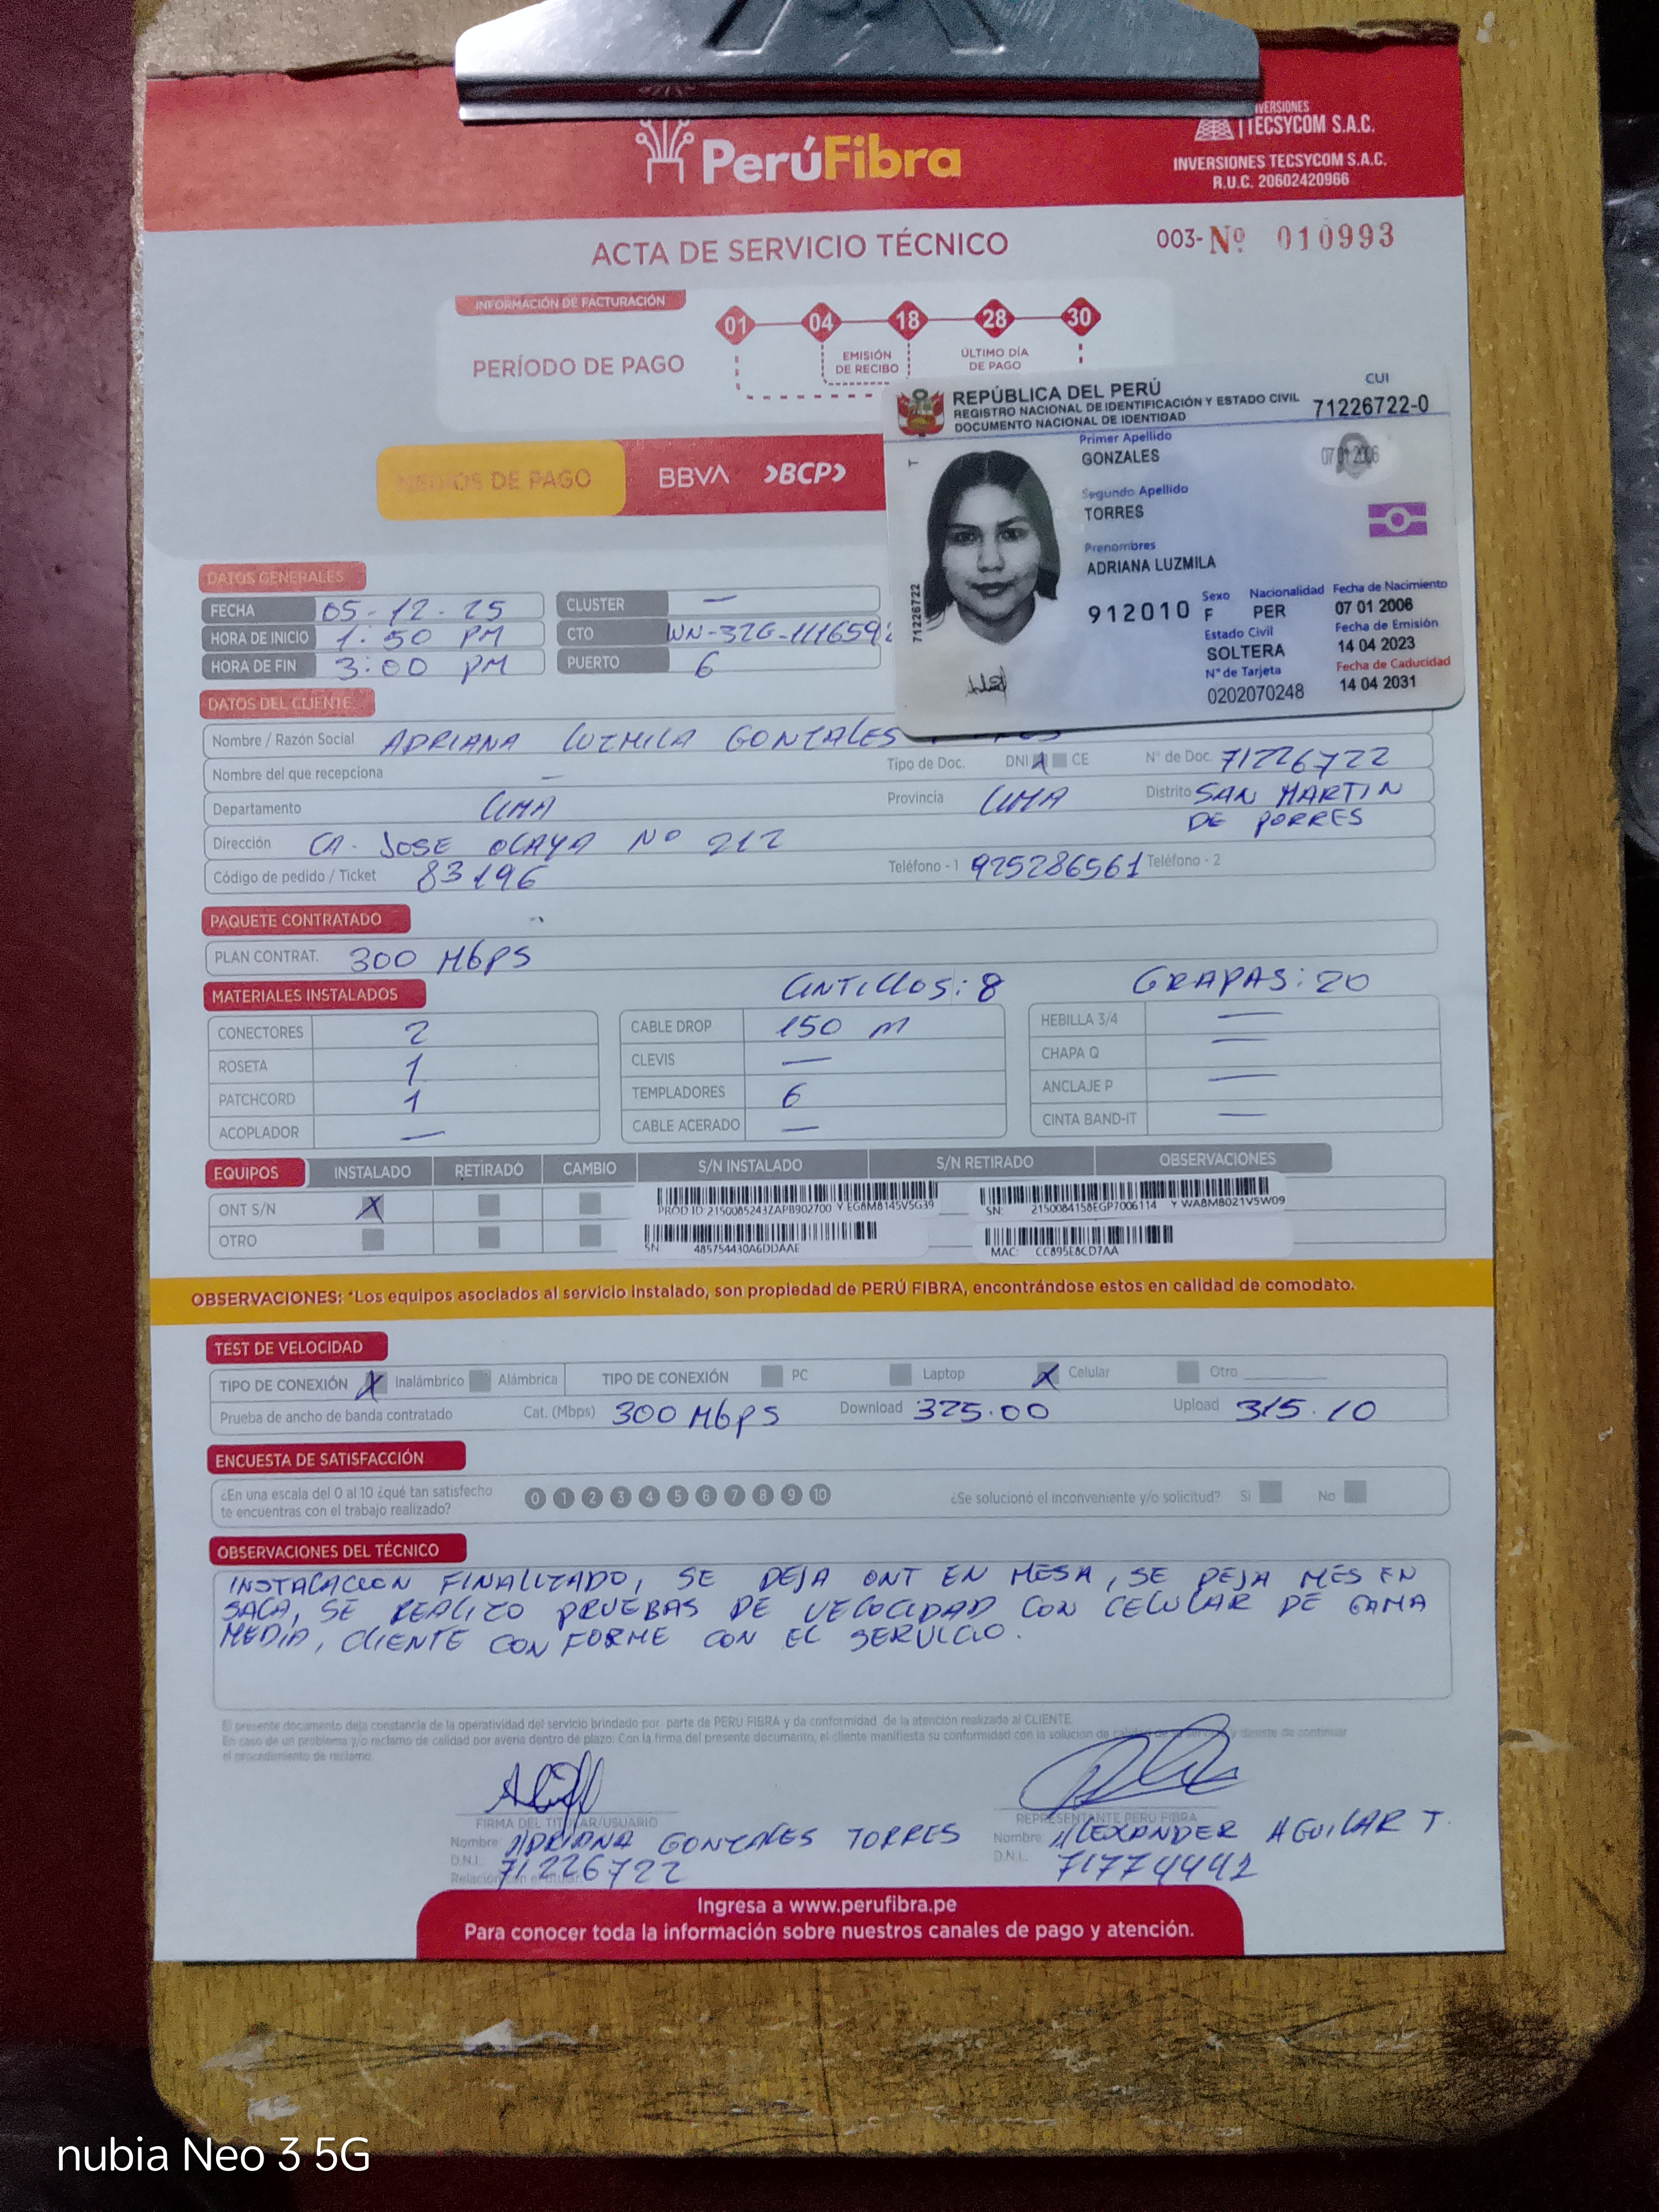 PerúFibra
INVERSIONES
TECSYCOM S.A.C.
INVERSIONES TECSYCOM S.A.C.
R.U.C. 20602420966
ACTA DE SERVICIO TÉCNICO
003-Nº 010993
INFORMACIÓN DE FACTURACIÓN
PERÍODO DE PAGO
01 04 18 28 30
EMISIÓN DE RECIBO
ÚLTIMO DÍA DE PAGO
MEDIOS DE PAGO BBVA >BCP>
REPÚBLICA DEL PERÚ
REGISTRO NACIONAL DE IDENTIFICACIÓN Y ESTADO CIVIL
DOCUMENTO NACIONAL DE IDENTIDAD
CUI
71226722-0
Primer Apellido
GONZALES
07 01 2006
Segundo Apellido
TORRES
Prenombres
ADRIANA LUZMILA
T
71226722
912010
Sexo Nacionalidad Fecha de Nacimiento
F PER 07 01 2006
Estado Civil Fecha de Emisión
SOLTERA 14 04 2023
Nº de Tarjeta Fecha de Caducidad
0202070248 14 04 2031
DATOS GENERALES
FECHA 05-12-25 CLUSTER —
HORA DE INICIO 1:50 PM CTO WN-32G-111659
HORA DE FIN 3:00 PM PUERTO 6
DATOS DEL CLIENTE
Nombre / Razón Social ADRIANA LUZMILA GONZALES
Nombre del que recepciona — Tipo de Doc. DNI X CE Nº de Doc. 71226722
Departamento LIMA Provincia LIMA Distrito SAN MARTIN
DE PORRES
Dirección CA. JOSE OLAYA Nº 212
Código de pedido / Ticket 83196 Teléfono - 1 925286561 Teléfono - 2
PAQUETE CONTRATADO
PLAN CONTRAT. 300 Mbps
MATERIALES INSTALADOS CINTILLOS: 8 GRAPAS: 20
CONECTORES 2 CABLE DROP 150 M HEBILLA 3/4 —
ROSETA 1 CLEVIS — CHAPA Q —
PATCHCORD 1 TEMPLADORES 6 ANCLAJE P —
ACOPLADOR — CABLE ACERADO — CINTA BAND-IT —
EQUIPOS INSTALADO RETIRADO CAMBIO S/N INSTALADO S/N RETIRADO OBSERVACIONES
ONT S/N X
PROD ID: 2150085243ZAPB902700 Y EG8M8145V5G39
SN: 2150084158EGP7006114 Y WA8M8021V5W09
OTRO
SN 485754430A6DDAAE
MAC: CC895E8CD7AA
OBSERVACIONES: *Los equipos asociados al servicio instalado, son propiedad de PERÚ FIBRA, encontrándose estos en calidad de comodato.
TEST DE VELOCIDAD
TIPO DE CONEXIÓN X Inalámbrico Alámbrica TIPO DE CONEXIÓN PC Laptop X Celular Otro
Prueba de ancho de banda contratado Cat. (Mbps) 300 Mbps Download 325.00 Upload 315.10
ENCUESTA DE SATISFACCIÓN
¿En una escala del 0 al 10 ¿qué tan satisfecho
te encuentras con el trabajo realizado?
0 1 2 3 4 5 6 7 8 9 10
¿Se solucionó el inconveniente y/o solicitud? Si No
OBSERVACIONES DEL TÉCNICO
INSTALACION FINALIZADO, SE DEJA ONT EN MESA, SE DEJA MES EN
SALA, SE REALIZO PRUEBAS DE VELOCIDAD CON CELULAR DE GAMA
MEDIA, CLIENTE CONFORME CON EL SERVICIO.
El presente documento deja constancia de la operatividad del servicio brindado por parte de PERU FIBRA y da conformidad de la atención realizada al CLIENTE.
En caso de un problema y/o reclamo de calidad por avería dentro de plazo: Con la firma del presente documento, el cliente manifiesta su conformidad con la solucion de y desiste de continuar
el procedimiento de reclamo.
FIRMA DEL TITULAR/USUARIO
Nombre: ADRIANA GONZALES TORRES
D.N.I. 71226722
Relación con el titular
REPRESENTANTE PERU FIBRA
Nombre: ALEXANDER AGUILAR T.
D.N.I. 71774442
Ingresa a www.perufibra.pe
Para conocer toda la información sobre nuestros canales de pago y atención.
nubia Neo 3 5G